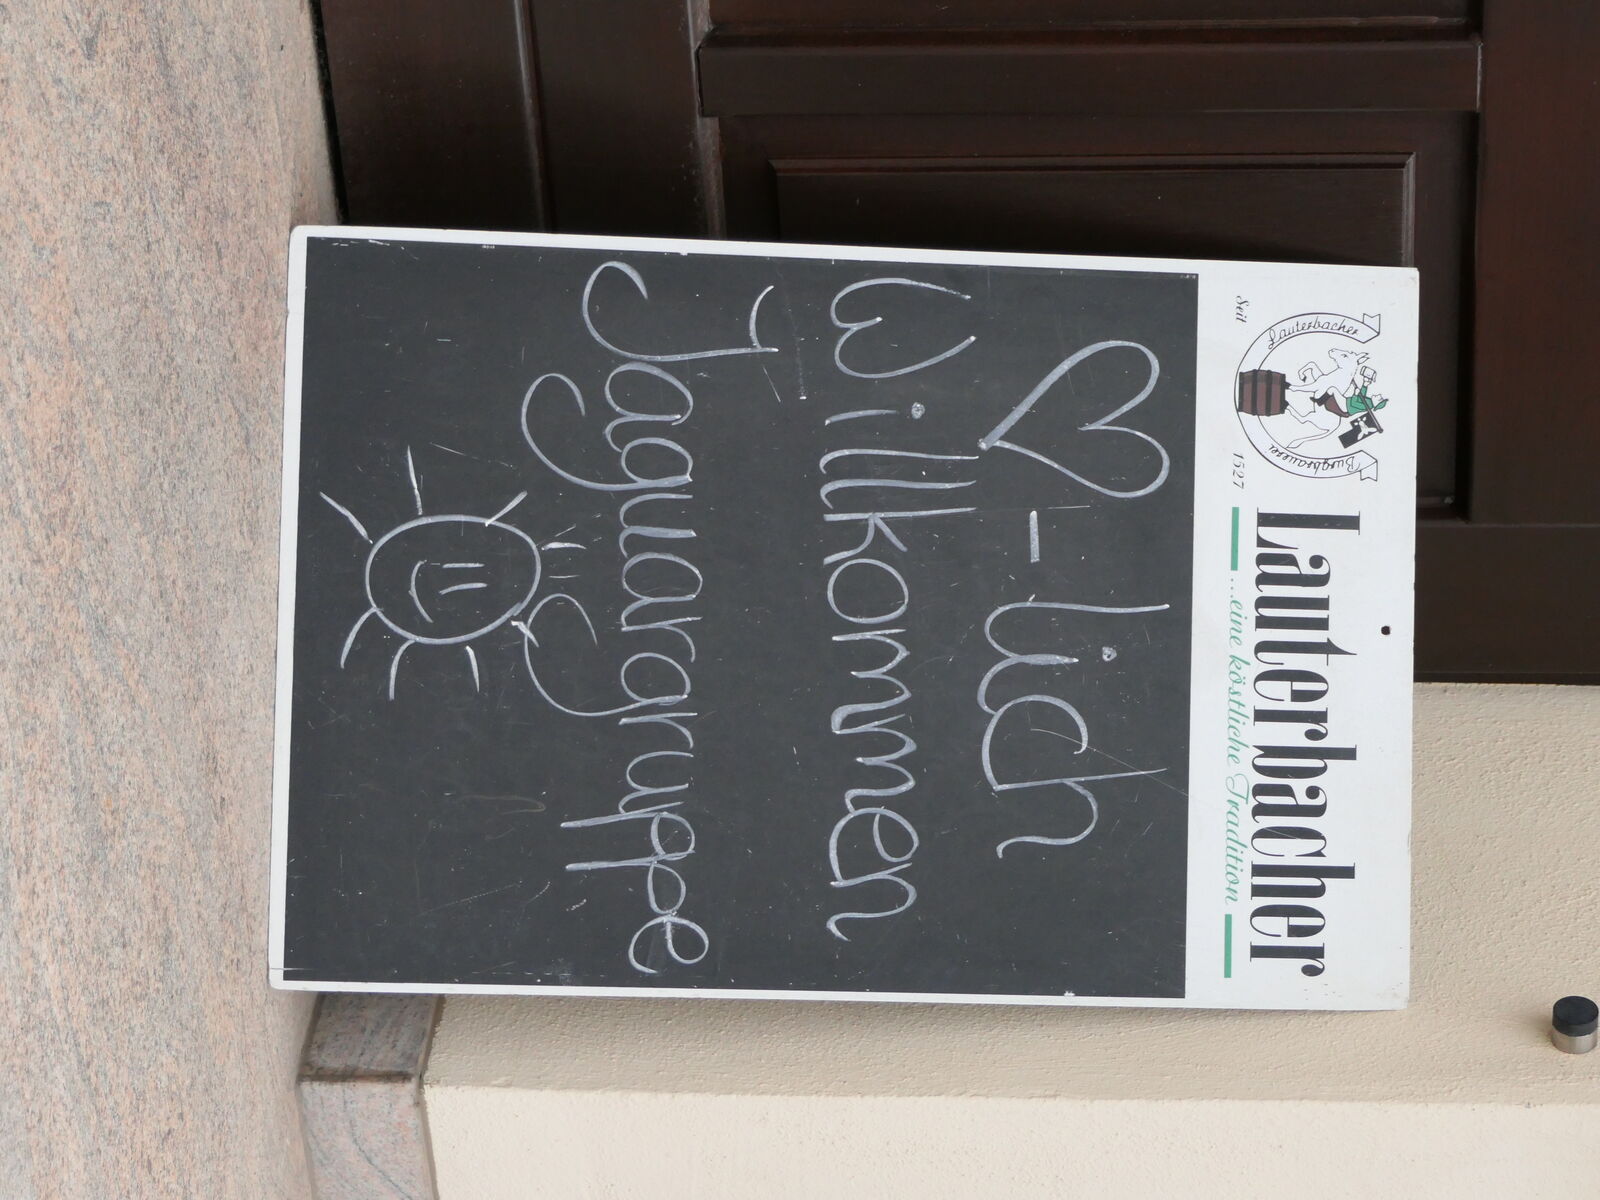 Lauterbacher
Burgbrauerei
Seit 1527
Lauterbacher
...eine köstliche Tradition
-lich
Willkommen
Jaguargruppe